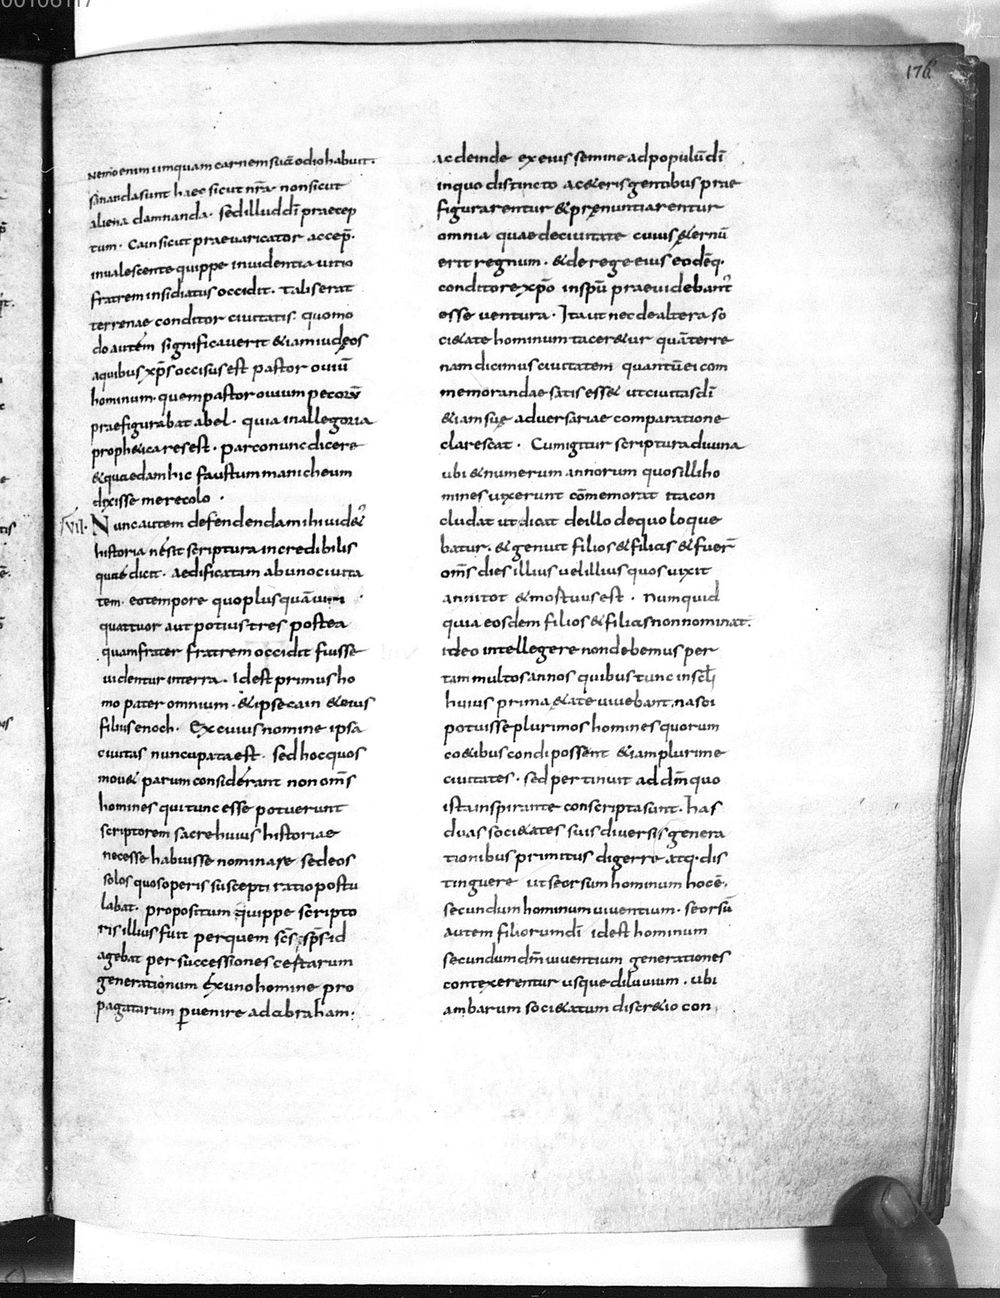 00106117
176
Nemo enim umquam carnem suā odio habuit.
Sananda sunt haec sicut nr̄a non sicut
aliena damnanda. sed illud dī praecep
tum. Cain sicut praevaricator accep̄.
invalescente quippe invidentia vitio
fratrem insidiatus occidit. talis erat
terrenae conditor civitatis. quomo
do autem significaverit &iam iudęos
a quibus xp̄s occisus est pastor oviū
hominum. quem pastor ovium pecorū
praefigurabat abel. quia in allegoria
proph&ica res est. parco nunc dicere
& quaedam hic faustum manicheum
dixisse me recolo.
VII. Nunc autem defendenda mihi vid&
historia ne sit scriptura incredibilis
quae dicit. aedificatam ab uno civita
tem. eo tempore quo plus quā viri
quattuor aut potius tres postea
quam frater fratrem occidit fuisse
videntur in terra. Id est primus ho
mo pater omnium. & ipse cain & eius
filius enoch. Ex cuius nomine ipsa
civitas nuncupata est. sed hoc quos
mov& parum considerant non om̄s
homines qui tunc esse potuerunt
scriptorem sacre huius historiae
necesse habuisse nominare sed eos
solos quos operis suscepti ratio postu
labat. propositum quippe scripto
ris illius fuit per quem sc̄s sp̄s id
agebat per successiones certarum
generationum Ex uno homine pro
pagatarum pvenire ad abraham.
ac deinde ex eius semine ad populū dī
in quo distincto a c&eris gentibus prae
figurarentur & pręnuntiarentur
omnia quae de civitate cuius &ernū
erit regnum. & de rege eius eodēq.
conditore xp̄o in sp̄u praevidebant̄
esse ventura. Ita ut nec de altera so
ci&ate hominum tacer&ur quā terre
nam dicimus civitatem quantū ei com
memorandae satis esse& ut civitas dī
&iam suę adversariae comparatione
clarescat. Cum igitur scriptura divina
ubi & numerum annorum quos illi ho
mines vixerunt cōmemorat ita con
cludat ut dicat de illo de quo loque
batur. & genuit filios & filias & fuer̄
om̄s dies illius vel illius quos vixit
anni tot & mortuus est. Numquid
quia eosdem filios & filias non nominat.
ideo intellegere non debemus per
tam multos annos quibus tunc in sc̄li
huius prima &ate vivebant. nasci
potuisse plurimos homines quorum
co&ibus condi possent &iam plurime
civitates. sed pertinuit ad dm̄ quo
ista inspirante conscripta sunt. has
duas soci&ates suis diversis genera
tionibus primitus digerre atq. dis
tinguere ut seorsum hominum hoc ē.
secundum hominum viventium. seorsū
autem filiorum dī id est hominum
secundum dm̄ viventium generationes
contexerentur usque diluvium. ubi
ambarum soci&atum discr&io con